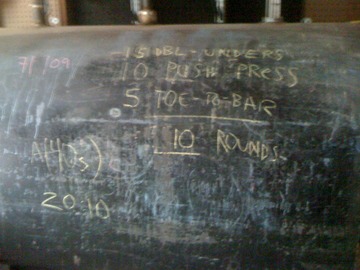 15 DBL-UNDERS
10 PUSH PRESS
5 TOE-TO-BAR
10 ROUNDS
20 10